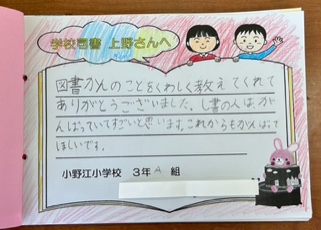 学校司書 上野さんへ
図書かんのことをくわしく教えてくれて
ありがとうございました。し書の人は、が
んばっていてすごいと思います。これからもがんばって
ほしいです。
小野江小学校 3年 A 組